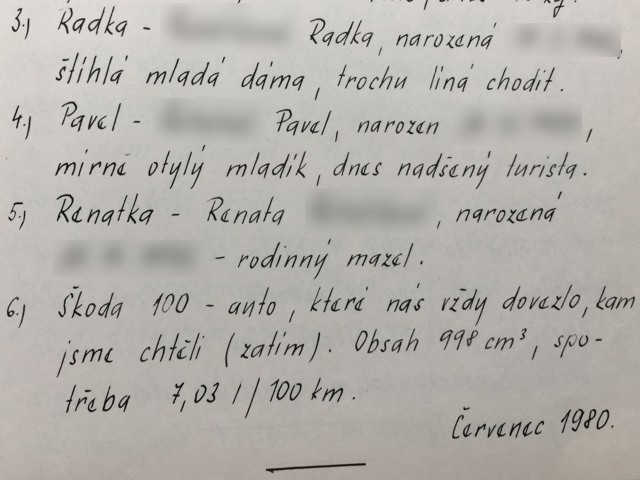 3.) Radka - Radka, narozená
štíhlá mladá dáma, trochu líná chodit.
4.) Pavel - Pavel, narozen ,
mírně otylý mladík, dnes nadšený turista.
5.) Renatka - Renata , narozená
- rodinný mazel.
6.) Škoda 100 - auto, které nás vždy dovezlo, kam
jsme chtěli (zatím). Obsah 998 cm³, spo-
třeba 7,03 l/100 km.
Červenec 1980.